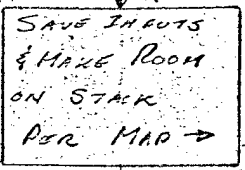 SAVE INPUTS
& MAKE ROOM
ON STACK
PER MAP →